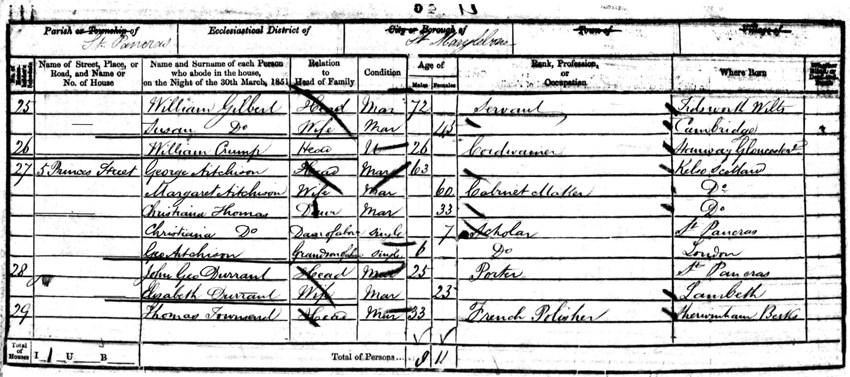 Parish or Township of Ecclesiastical District of City or Borough of Town of Village of
St. Pancras St Marylebone
Name of Street, Place, or Road, and Name or No. of House
Name and Surname of each Person who abode in the house, on the Night of the 30th March, 1851
Relation to Head of Family
Condition
Age of
Males Females
Rank, Profession, or Occupation
Where Born
25 William Gilbert Head Mar 72 Servant Wilts
Susan Do Wife Mar 45 Cambridge
26 William Crump Head U 26 Cordwainer Stanway Gloucester
27 5 Princes Street George Aitchison Head Mar 63 Kelso Scotland
Margaret Aitchison Wife Mar 60 Cabinet Maker Do
Christiana Thomas Daur Mar 33 Do
Christiana Do Daur of above Single 7 Scholar St Pancras
Geo Aitchison Grandson Single 6 Do London
28 John Geo Durrant Head Mar 25 Porter St Pancras
Elizabeth Durrant Wife Mar 25 Lambeth
29 Thomas Townsend Head Mar 33 French Polisher Berks
Total of Houses I 1 U B Total of Persons 9 11